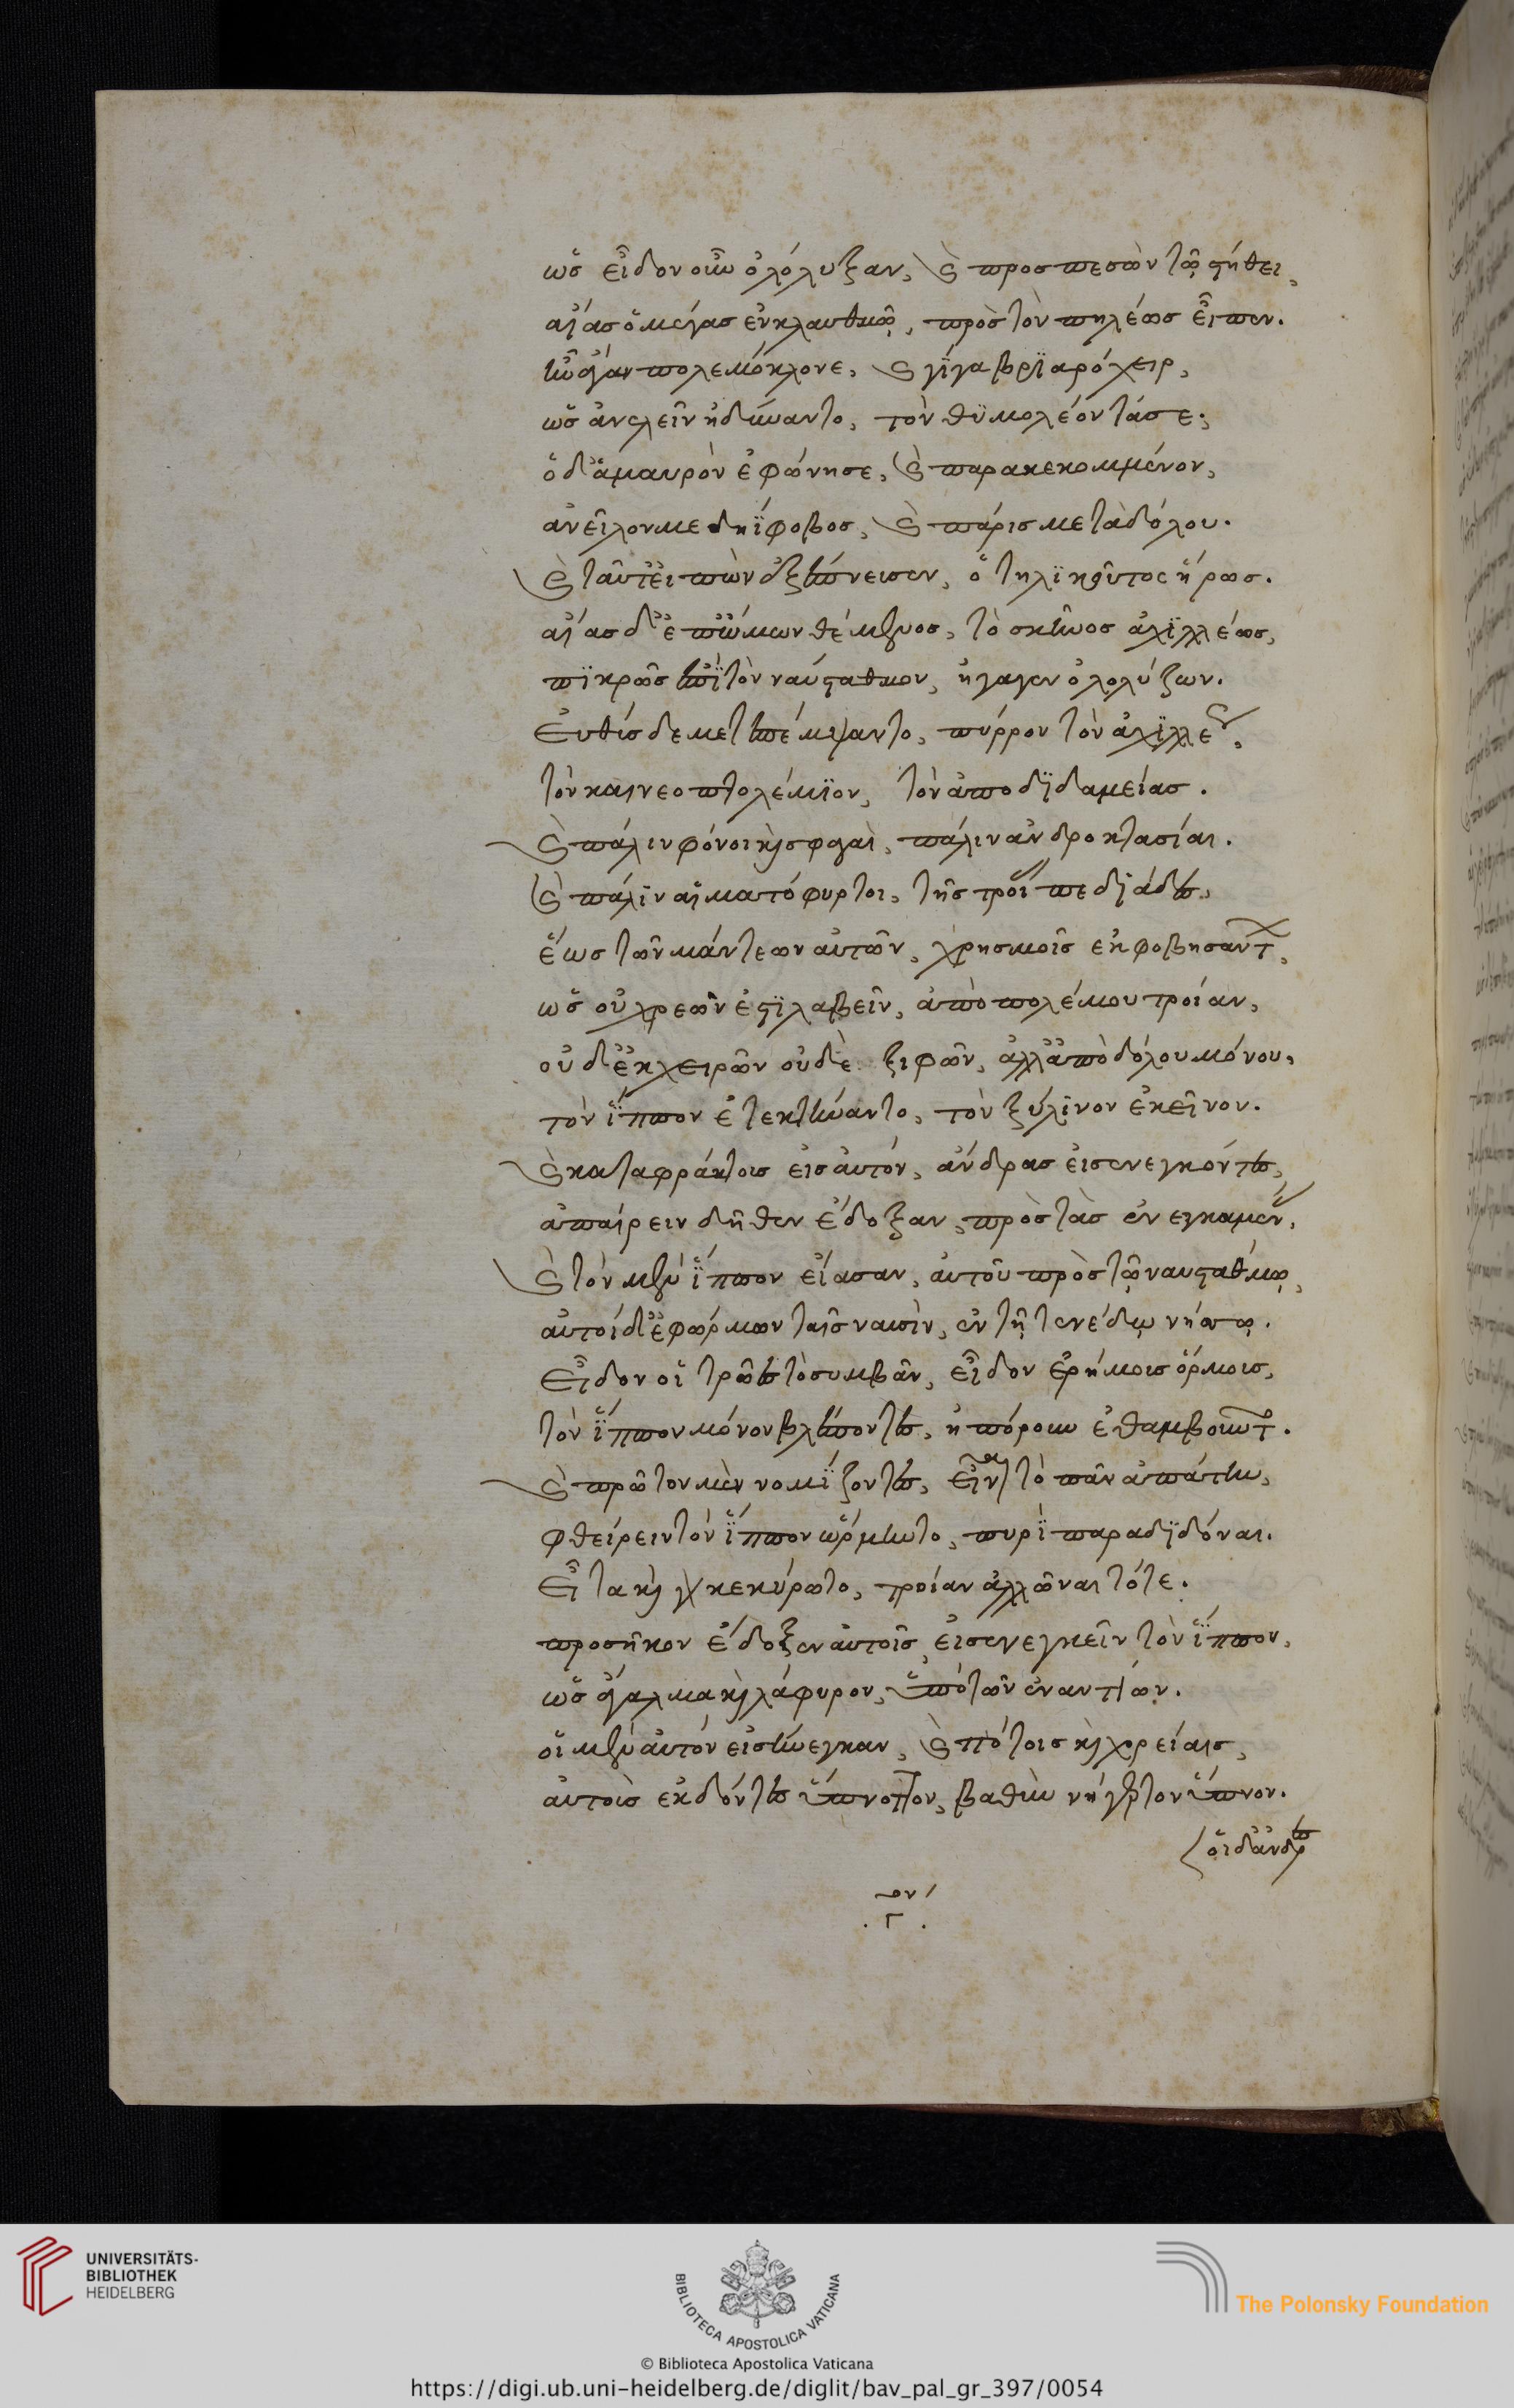 ὡς εἶδον οὖν ὀλόλυξαν, καὶ προσπεσὼν τῷ στήθει,
αἴας ὁ μέγας ἐν κλαυθμῷ, πρὸς τὸν πηλέως εἶπεν.
ὦ ἄγαν πολεμόκλονε, καὶ γίγα βριαρόχειρ,
ὡς ἀνελεῖν ἠδύναντο, τὸν θυμολέοντά σε;
ὁ δ' ἀμαυρὸν ἐφώνησε, καὶ παρακεκομμένον,
ἀνεῖλον με δηΐφοβος, καὶ πάρις μετὰ δόλου.
καὶ ταῦτ' εἰπὼν ἐξέπνευσεν, ὁ τηλικοῦτος ἥρως.
αἴας δ' ἐπώμων θέμενος, τὸ σκῆνος ἀχιλλέως,
πικρῶς ἐπὶ τὸν ναύσταθμον, ἤγαγεν ὀλολύζων.
Εὐθὺς δὲ μετεπέμψαντο, πύρρον τὸν ἀχιλλέως,
τὸν καὶ νεοπτολέμιον, τὸν ἀπο δηϊδαμείας.
καὶ πάλιν φόνοι καὶ σφαγαὶ, πάλιν ἀνδροκτασίαι.
καὶ πάλιν αἱματόφυρτοι, τῆς τροίας πεδιάδες,
ἕως τῶν μάντεων αὐτῶν, χρησμοῖς ἐκφοβησάντων,
ὡς οὐ χρεῶν ἐστὶ λαβεῖν, ἀπὸ πολέμου τροίαν,
οὐδ' ἐκ χειρῶν οὐδὲ ξιφῶν, ἀλλ' ἀπὸ δόλου μόνου,
τὸν ἵππον ἐτεκτήναντο, τὸν ξύλινον ἐκεῖνον.
καὶ καταφράκτους εἰς αὐτόν, ἄνδρας εἰσενεγκόντες,
ἀπαίρειν δῆθεν ἔδοξαν, πρὸς τὰς ἐνεγκαμένας,
καὶ τὸν μὲν ἵππον εἴασαν, αὐτοῦ πρὸς τῷ ναυστάθμῳ,
αὐτοὶ δ' ἐφώρμων ταῖς ναυσὶν, ἐν τῇ τενέδῳ νήσῳ.
Εἶδον οἱ τρῶες τὸ συμβᾶν, εἶδον ἐρήμους ὅρμους,
τὸν ἵππον μόνον βλέποντες, ἠπόρουν ἐθαμβοῦντο.
καὶ πρῶτον μὲν νομίζοντες, εἶναι τὸ πᾶν ἀπάτην,
φθείρειν τὸν ἵππον ὥρμηντο, πυρὶ παραδιδόναι.
Εἶτα καὶ γὰρ κεκύρωτο, τροίαν ἁλῶναι τότε.
προσῆκον ἔδοξεν αὐτοῖς, εἰσενεγκεῖν τὸν ἵππον,
ὡς ἄγαλμα καὶ λάφυρον, ὑπὸ τῶν ἐναντίων.
οἱ μὲν αὐτὸν εἰσήνεγκαν, καὶ πότοις καὶ χορείαις,
αὐτοὺς ἐκδόντες ὕπνοττον, βαθὺν νήγρετον ὕπνον.
οἱ δ' ἄνδρες
UNIVERSITÄTS-
BIBLIOTHEK
HEIDELBERG
BIBLIOTECA APOSTOLICA VATICANA
The Polonsky Foundation
© Biblioteca Apostolica Vaticana
https://digi.ub.uni-heidelberg.de/diglit/bav_pal_gr_397/0054